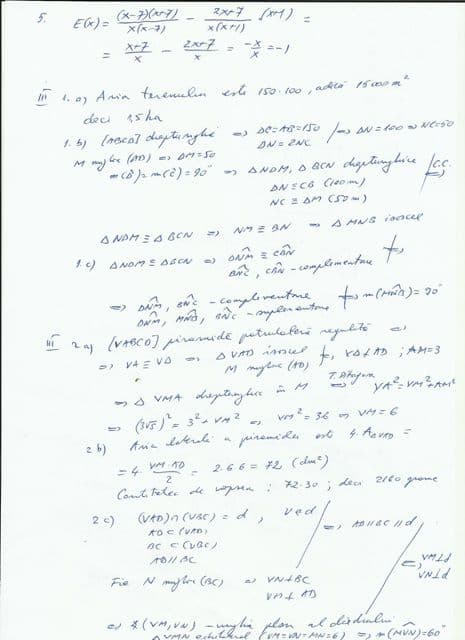 5. E(x) = (x-7)(x+7) / x(x-7) - 2x+7 / x(x+1) · (x+1) =
= x+7 / x - 2x+7 / x = -x / x = -1
III 1. a) Aria terenului este 150·100, adică 15000 m²
deci 1,5 ha
1. b) [ABCD] dreptunghi ⇒ DC=AB=150
DN = 2NC
⇒ DN=100 ⇒ NC=50
M mijloc (AD) ⇒ DM=50
m(D̂)=m(Ĉ)=90° ⇒ ΔNDM, ΔBCN dreptunghice
DN≡CB (100m)
NC≡DM (50m)
C.C. ⇒
ΔNDM≡ΔBCN ⇒ NM≡BN ⇒ ΔMNB isoscel
1. c) ΔNDM≡ΔBCN ⇒ DNM≡CBN
BNC, CBN - complementare
⇒ DNM, BNC - complementare
DNM, MNB, BNC - suplementare
⇒ m(MNB)=90°
III 2 a) [VABCD] piramidă patrulateră regulată ⇒
⇒ VA≡VD ⇒ ΔVAD isoscel
M mijloc (AD)
; AM=3
⇒ ΔVMA dreptunghic în M ⇒ VA²=VM²+AM²
⇒ (3√5)²=3²+VM² ⇒ VM²=36 ⇒ VM=6
2 b) Aria laterală a piramidei este 4·A_ΔVAD =
= 4· VM·AD / 2 = 2·6·6 = 72 (dm²)
Cantitatea de vopsea : 72·30 ; deci 2160 grame
2 c) (VAD)∩(VBC) = d , V∈d
AD⊂(VAD)
BC⊂(VBC)
AD∥BC
⇒ AD∥BC∥d
Fie N mijloc (BC) ⇒ VN⊥BC
VM⊥AD
⇒ VM⊥d
VN⊥d
⇒ ∢(VM,VN) - unghi plan al diedrului
ΔVMN echilateral (VM=VN=MN=6) ⇒ m(MVN)=60°